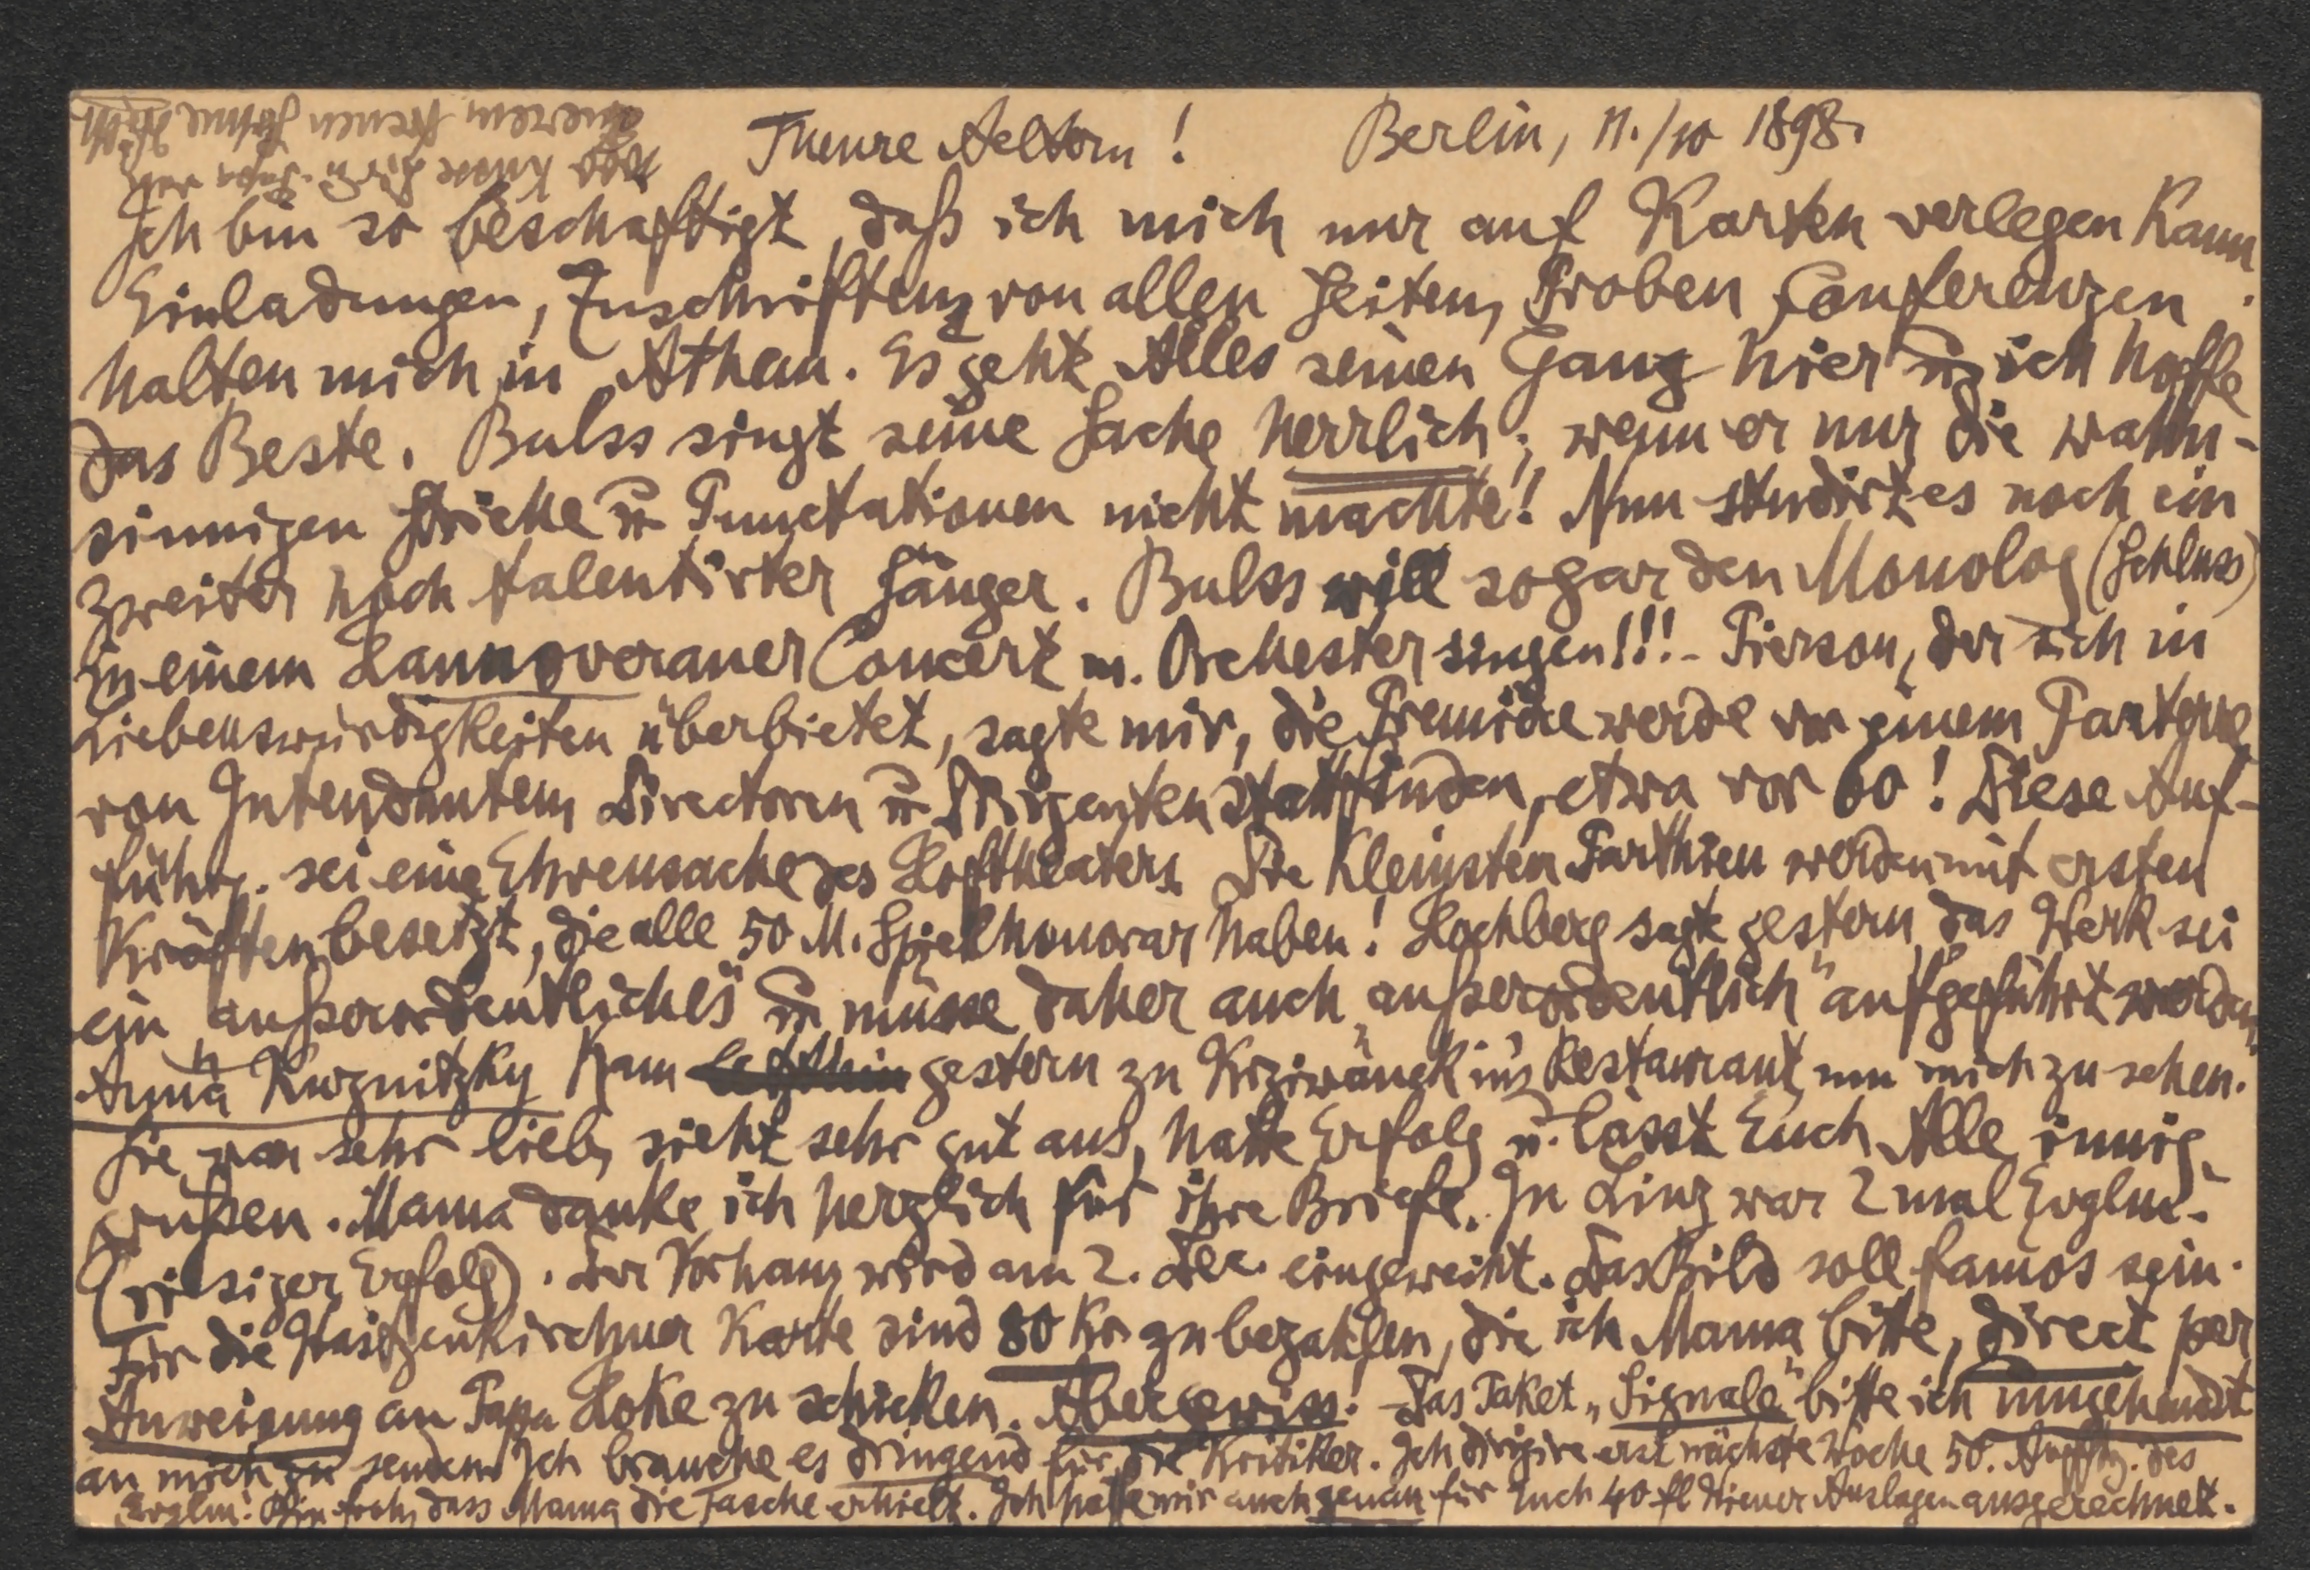 Theure Aeltern! Berlin, 11./10 1898.
Ich bin so beschäftigt, daß ich mich nur auf Karten verlegen kann.
Einladungen, Zuschriften, von allen Seiten, Proben, Conferenzen
halten mich in Athem. Es geht Alles seinen Gang hier u. ich hoffe
das Beste. Bulss singt seine Sache herrlich; wenn er nur die wahn-
sinnigen Striche u. Punctationen nicht machte! Nun studirt es noch ein
zweiter hoch talentirter Sänger. Bulss will sogar den Monolog (Schluss)
in einem Hannoveraner Concert m. Orchester singen!!! - Pierson, der sich in
Liebenswürdigkeiten überbietet, sagte mir, die Première werde vor einem Parterre
von Intendanten, Directoren u. Dirigenten stattfinden, etwa vor 60! Diese Auf-
führg. sei eine Ehrensache des Hoftheaters. Die kleinsten Parthien werden mit ersten
Kräften besetzt, die alle 50 M. Spielhonorar haben! Hochberg sagte gestern, das Werk sei
ein "außerordentliches" u. müsse daher auch "außerordentlich" aufgeführt werden.
Anna Kuznitzky kam letzthin gestern zu Krziwanek in's Restaurant, um mich zu sehen.
Sie war sehr lieb, sieht sehr gut aus, hatte Erfolg u. lässt Euch Alle innig
grüßen. Mama danke ich herzlich für ihre Briefe. In Linz war 2 mal Evglm.
(riesiger Erfolg). Der Vorhang wird am 2. Dec. eingeweiht. Das Bild soll famos sein.
Für die Haitzenkirchner Karte sind 80 Kr zu bezahlen, die ich Mama bitte, direct per
Anweisung an Papa Hoke zu schicken. Aber gewiss! - Das Paket "Signale" bitte ich umgehendst
an mich zu senden. Ich brauche es dringend für die Kritiker. Ich dirigire erst nächste Woche 50. Auffhg. des
Evglm. Bin froh, dass Mama die Tasche erhielt. Ich hatte mir auch genau für Euch 40 fl Wiener Auslagen ausgerechnet.
1000 Küsse Dir u. Papa von
Euerem treuen Sohne